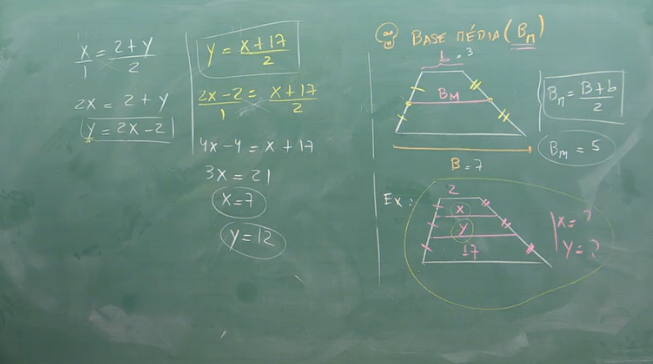 x/1 = 2+y/2
2x = 2+y
y = 2x-2
y = x+17/2
2x-2/1 = x+17/2
4x-4 = x+17
3x = 21
x=7
y=12
BASE MÉDIA (BM)
b = 3
BM
BM = B+b/2
BM = 5
B = 7
Ex:
2
x
y
17
x = ?
y = ?